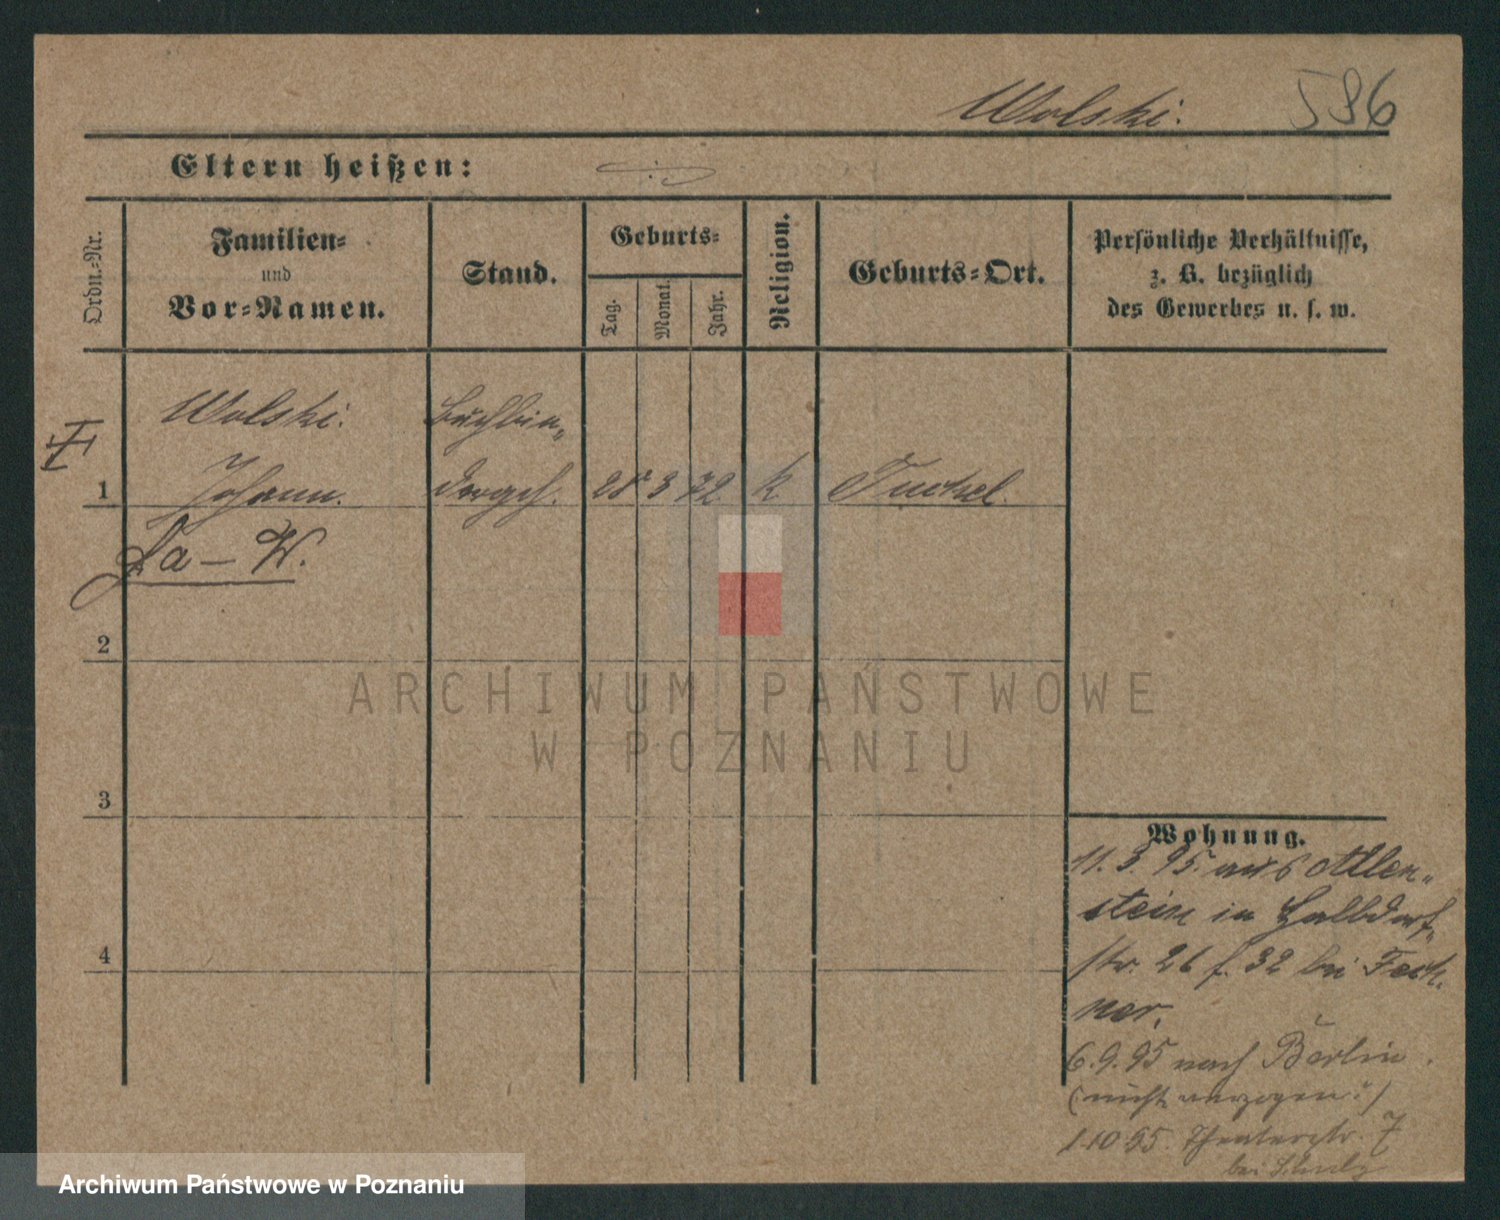 Wolski.
586
Eltern heißen:
Ordn.=Nr.
Familien=
und
Vor=Namen.
Stand.
Geburts=
Tag.
Monat.
Jahr.
Religion.
Geburts=Ort.
Persönliche Verhältnisse,
z. B. bezüglich
des Gewerbes u. s. w.
Wolski.
Buchbin„
1
Johann.
dergeh.
28 3 72
k
Tuchel.
La – W.
2
3
4
Wohnung.
11. 3. 95. aus Allen„
stein in Halbdorf„
str. 26 f. 32 bei Fech„
ner.
6.9.95 nach Berlin.
(nicht verzogen.)
1.10.95. Theaterstr. 7
bei
ARCHIWUM PAŃSTWOWE
W POZNANIU
Archiwum Państwowe w Poznaniu